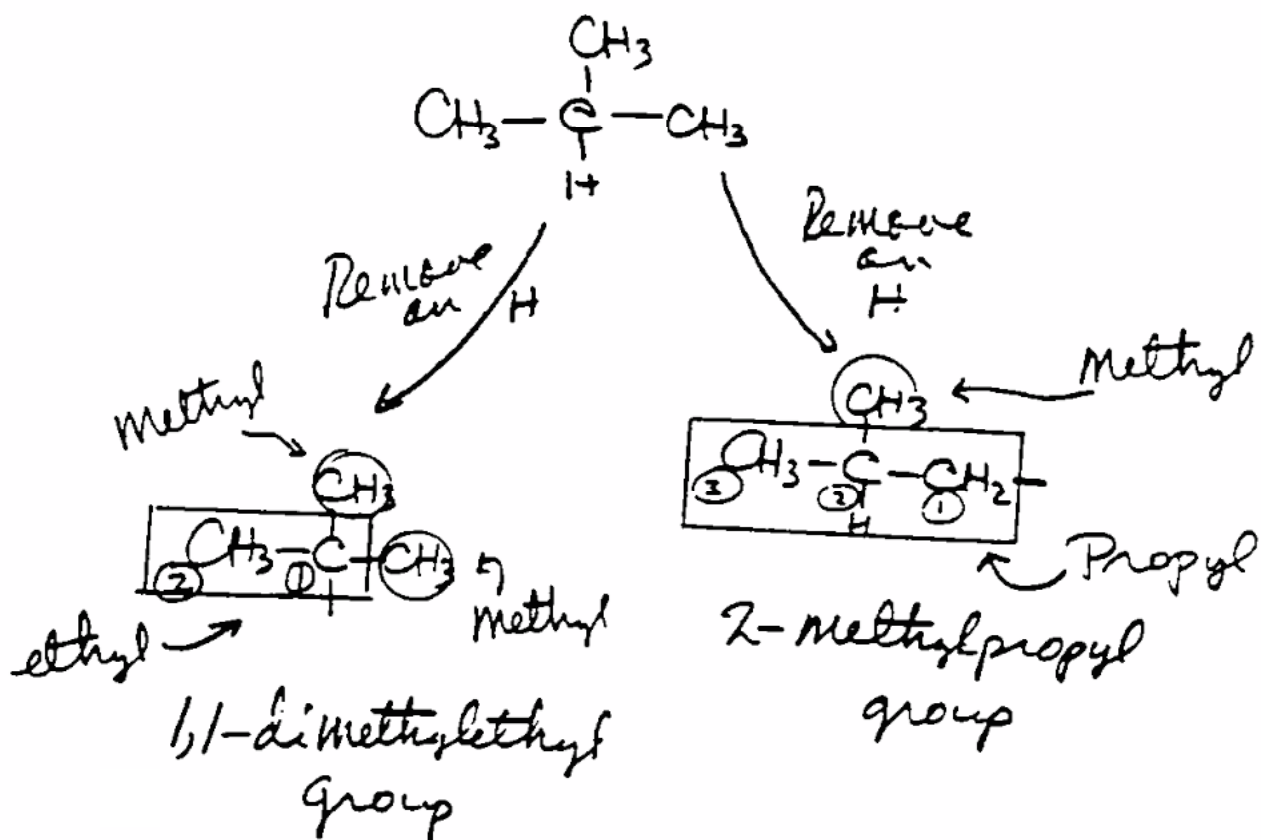 CH3
CH3 — C — CH3
H
Remove
an H
Remove
an
H
methyl
CH3
CH3 — C — CH3
② ①
ethyl
methyl
1,1-dimethylethyl
group
Methyl
CH3
CH3 — C — CH2 —
③ ② ①
H
Propyl
2-methylpropyl
group